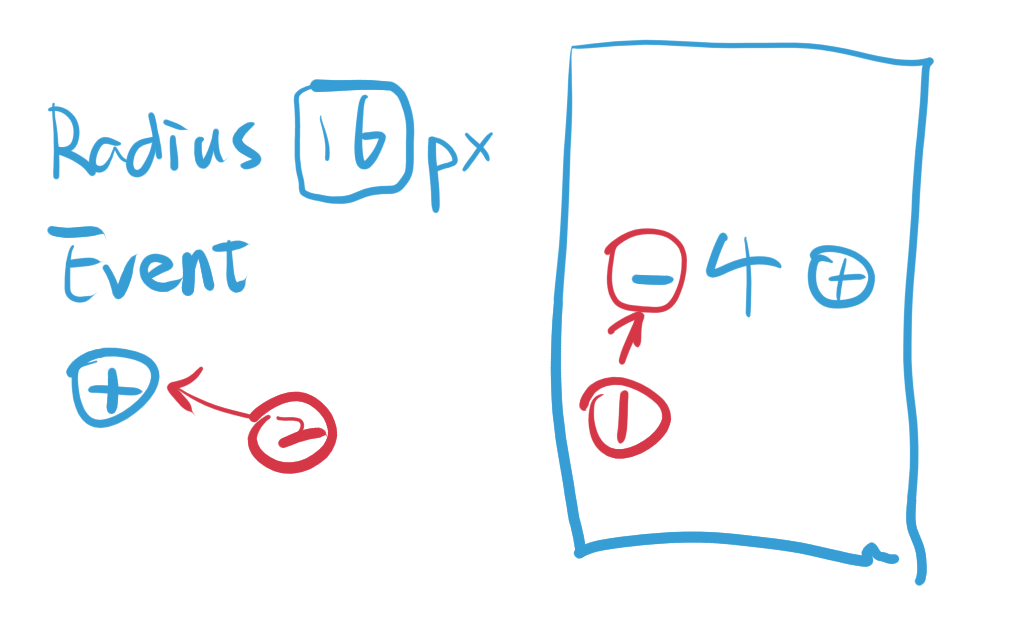 Radius 16 px
Event
+
2
- 4 +
1